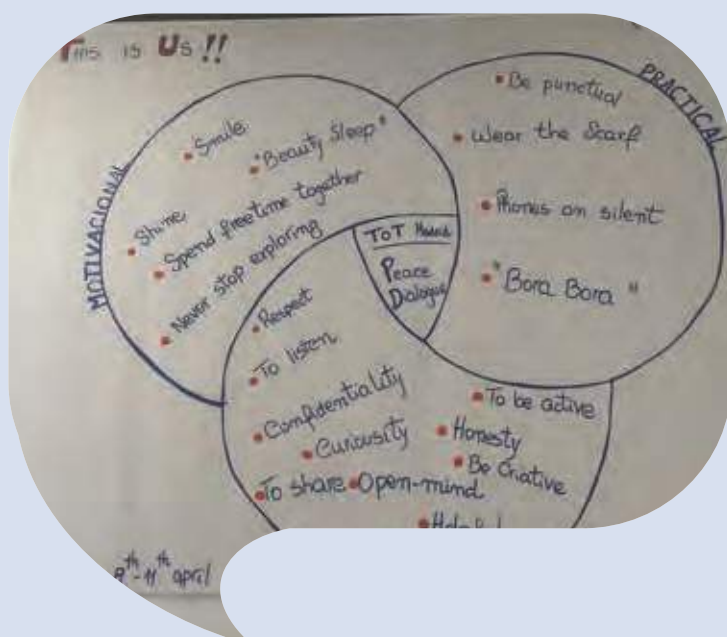 This is Us !!
MOTIVACIONAL
Smile
"Beauty Sleep"
Shine
Spend freetime together
Never stop exploring
PRACTICAL
Be punctual
Wear the Scarf
Phones on silent
"Bora Bora"
ToT
Peace
Dialogue
Respect
To listen
Confidentiality
Curiosity
To share
Open-mind
To be active
Honesty
Be Criative
th-11th april